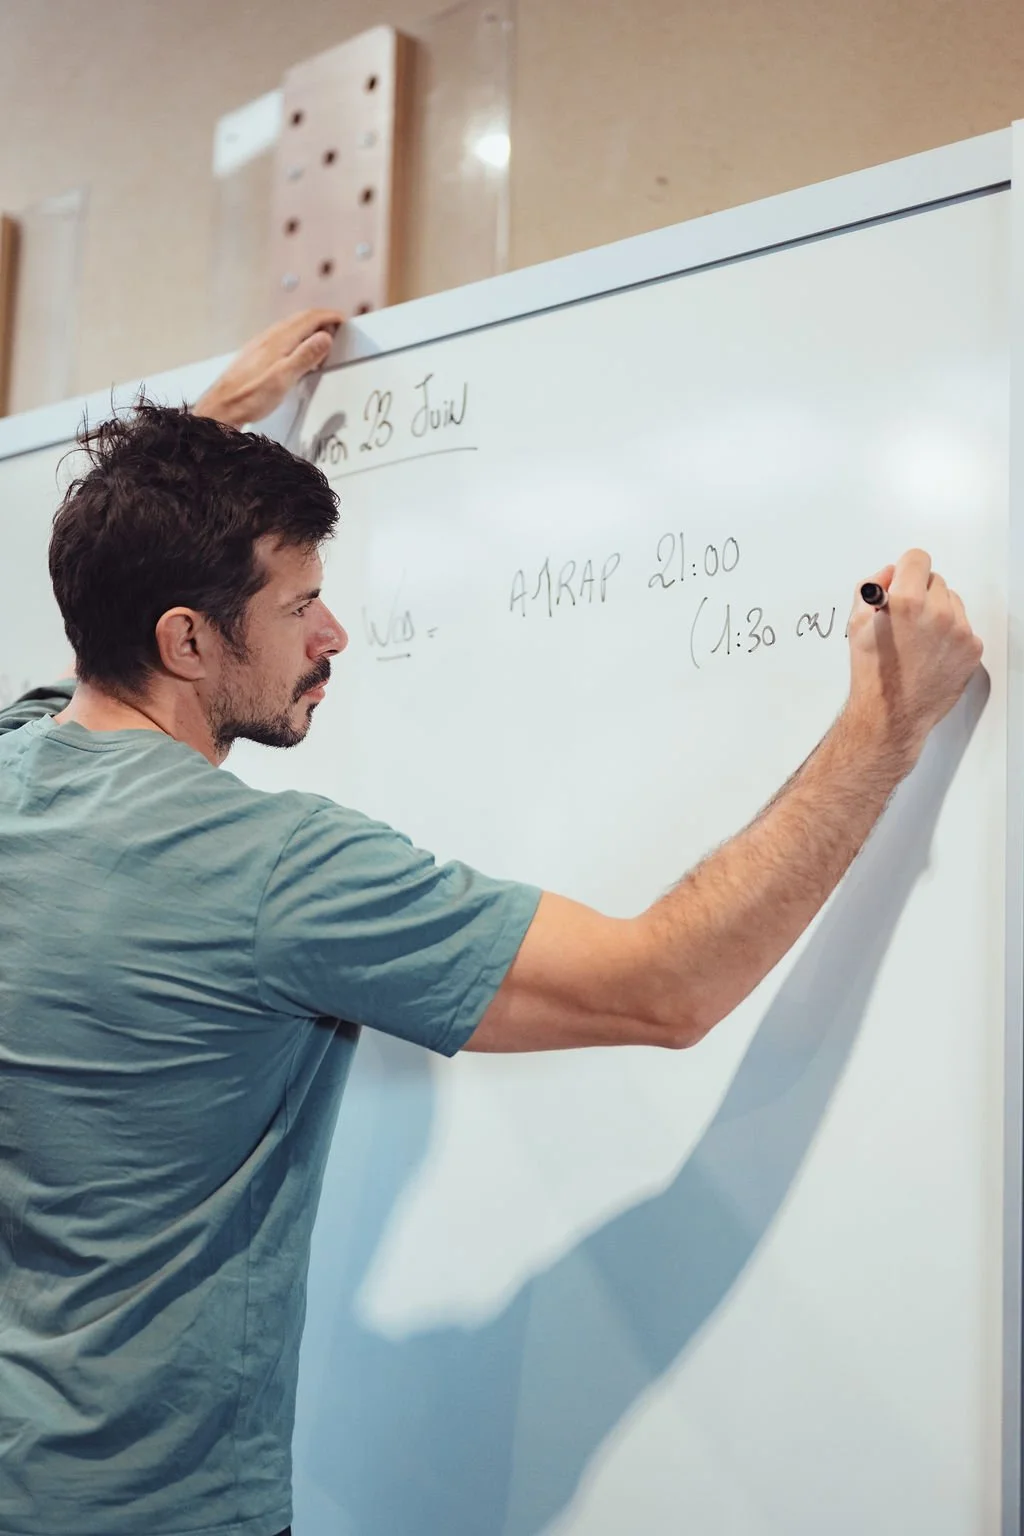 23 Juin
AMRAP 21:00
WOD =
(1:30 ON